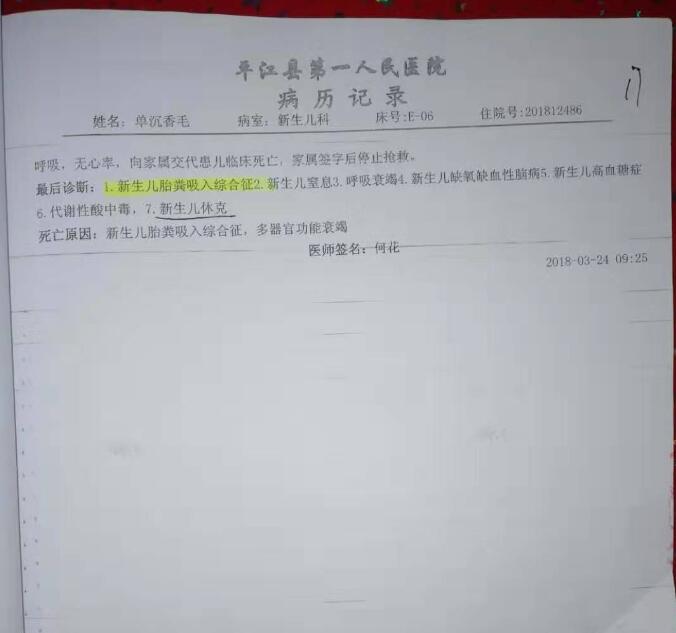 平江县第一人民医院
病历记录
姓名：单沉香毛 病室：新生儿科 床号:E-06 住院号:201812486
17
呼吸，无心率，向家属交代患儿临床死亡，家属签字后停止抢救。
最后诊断：1.新生儿胎粪吸入综合征2.新生儿窒息3.呼吸衰竭4.新生儿缺氧缺血性脑病5.新生儿高血糖症
6.代谢性酸中毒，7.新生儿休克
死亡原因：新生儿胎粪吸入综合征，多器官功能衰竭
医师签名：何花
2018-03-24 09:25